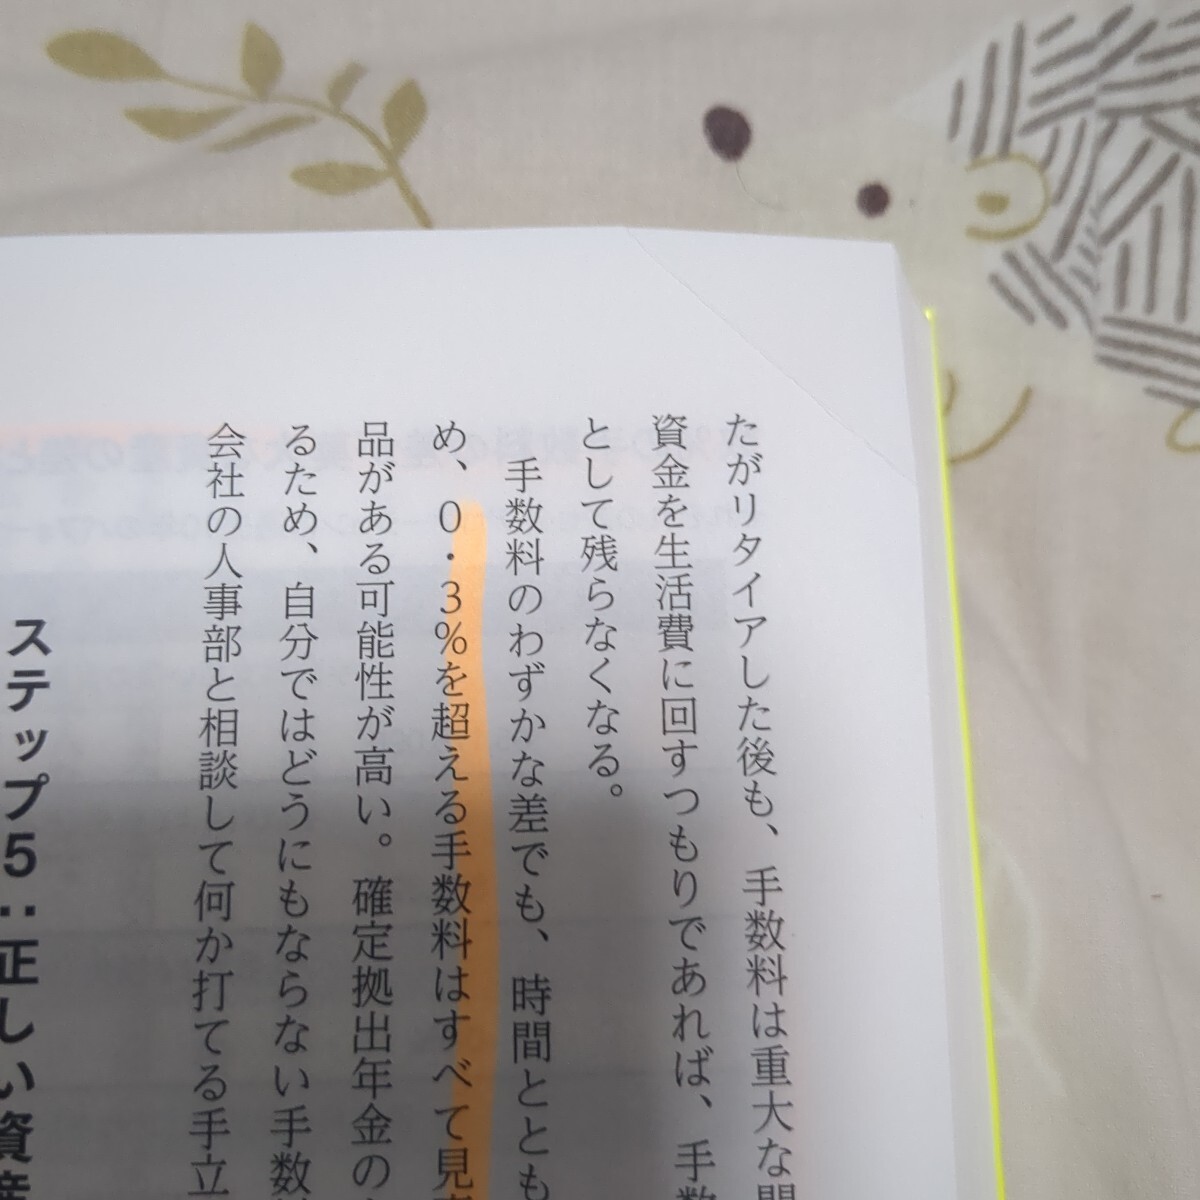 たがリタイアした後も、手数料は重大な
資金を生活費に回すつもりであれば、手数
として残らなくなる。
手数料のわずかな差でも、時間ととも
め、0・3%を超える手数料はすべて見
品がある可能性が高い。確定拠出年金の
るため、自分ではどうにもならない手数
会社の人事部と相談して何か打てる手立
ステップ5：正しい資産